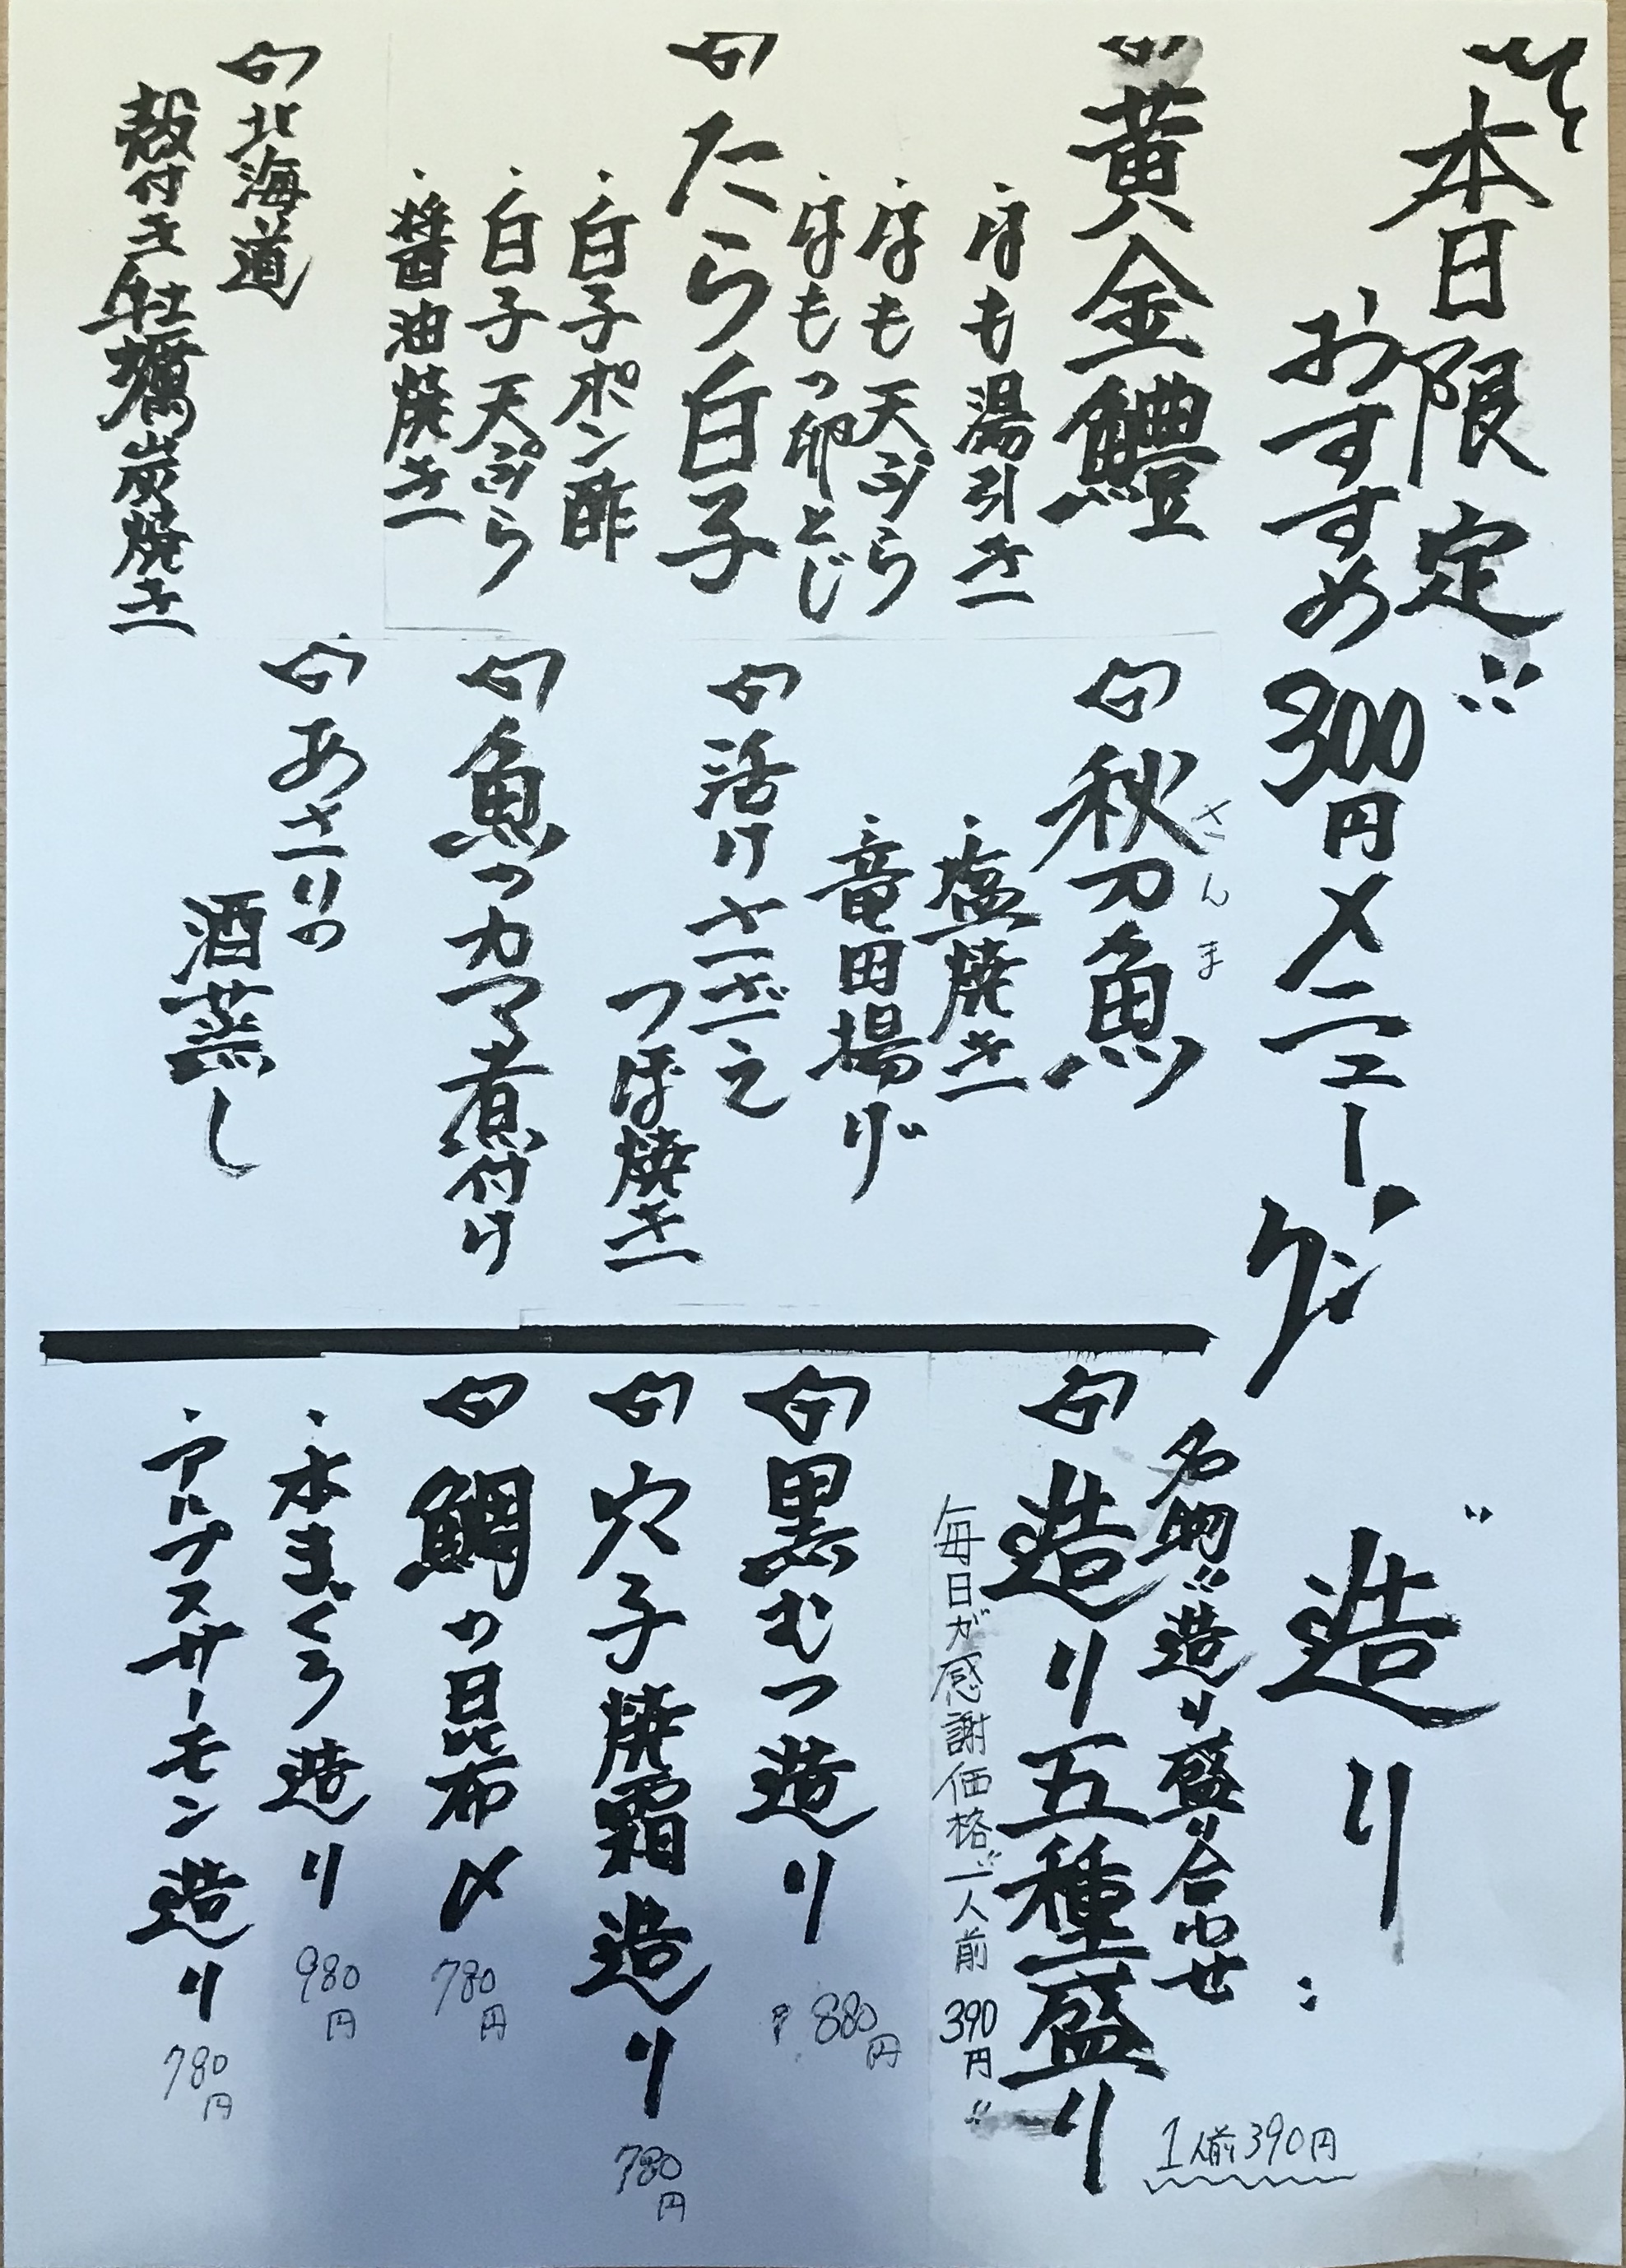 本日限定!!
おすすめ300円メニュー
黄金鱧
・はも湯引き
・はも天ぷら
・はもつ卵とじ
たら白子
・白子ポン酢
・白子天ぷら
・醤油焼き
北海道
殻付き牡蠣炭焼き
秋刀魚
さんま
・塩焼き
・竜田揚げ
活けさざえ
つぼ焼き
魚のカマ煮付け
あさりの
酒蒸し
造り
名物"造り盛り合わせ
1人前390円
造り五種盛り
毎日が感謝価格"一人前390円"
黒むつ造り 880円
穴子焼霜造り 780円
鯛の昆布〆 780円
・本まぐろ造り 980円
・アルプスサーモン造り 780円